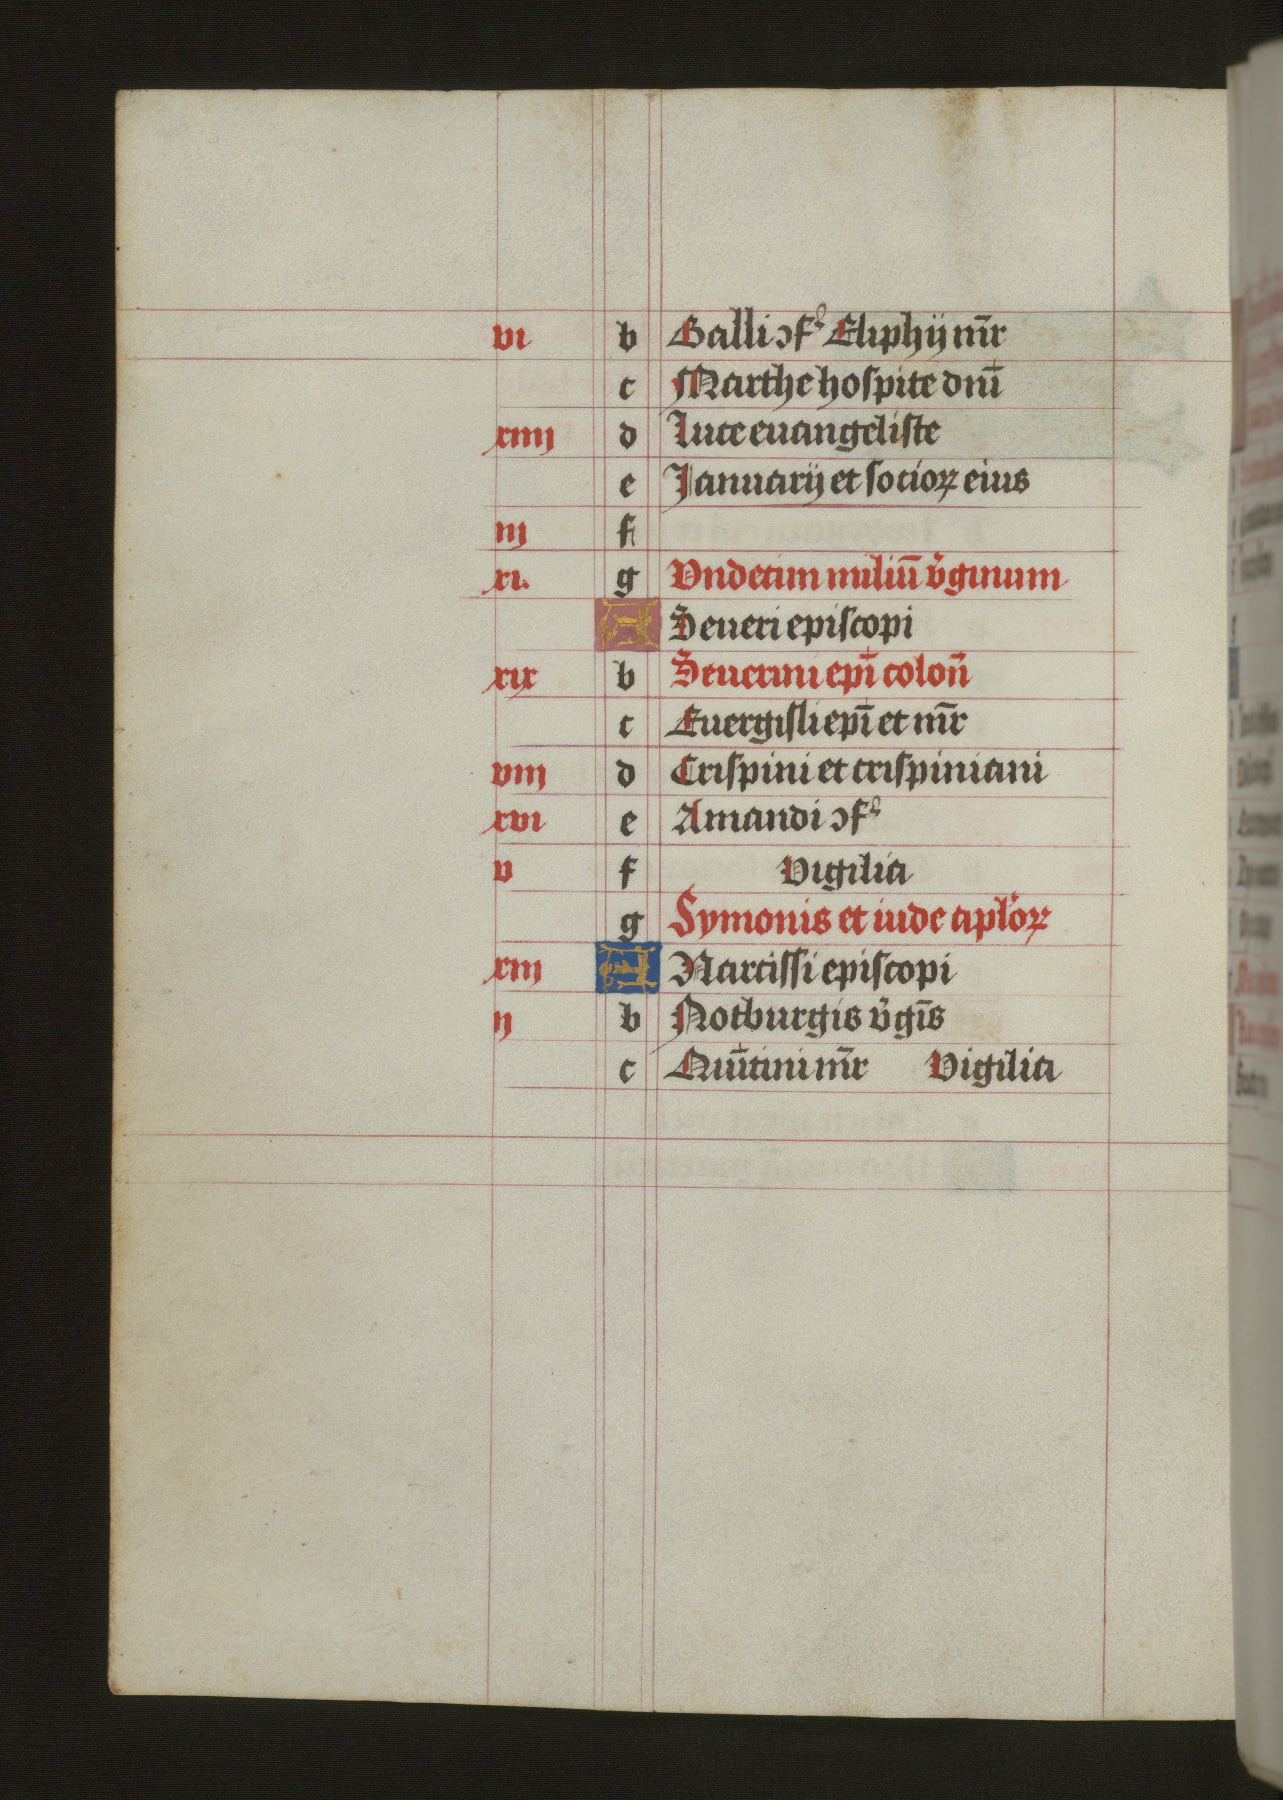 vi b Galli ↄf⁹ Eliphij m̄r
c Marthe hospite dn̄i
xiiij d Luce euangeliste
e Januarij et socioꝝ eius
iij f
xi. g Vndecim miliū v̓ginum
A Seueri episcopi
xix b Seuerini ep̄i colon̄
c Euergisli ep̄i et m̄r
viij d Crispini et crispiniani
xvi e Amandi ↄf⁹
v f Vigilia
g Symonis et iude apl̓oꝝ
xiij A Narcissi episcopi
ij b Notburgis v̓gīs
c Quītini m̄r Vigilia